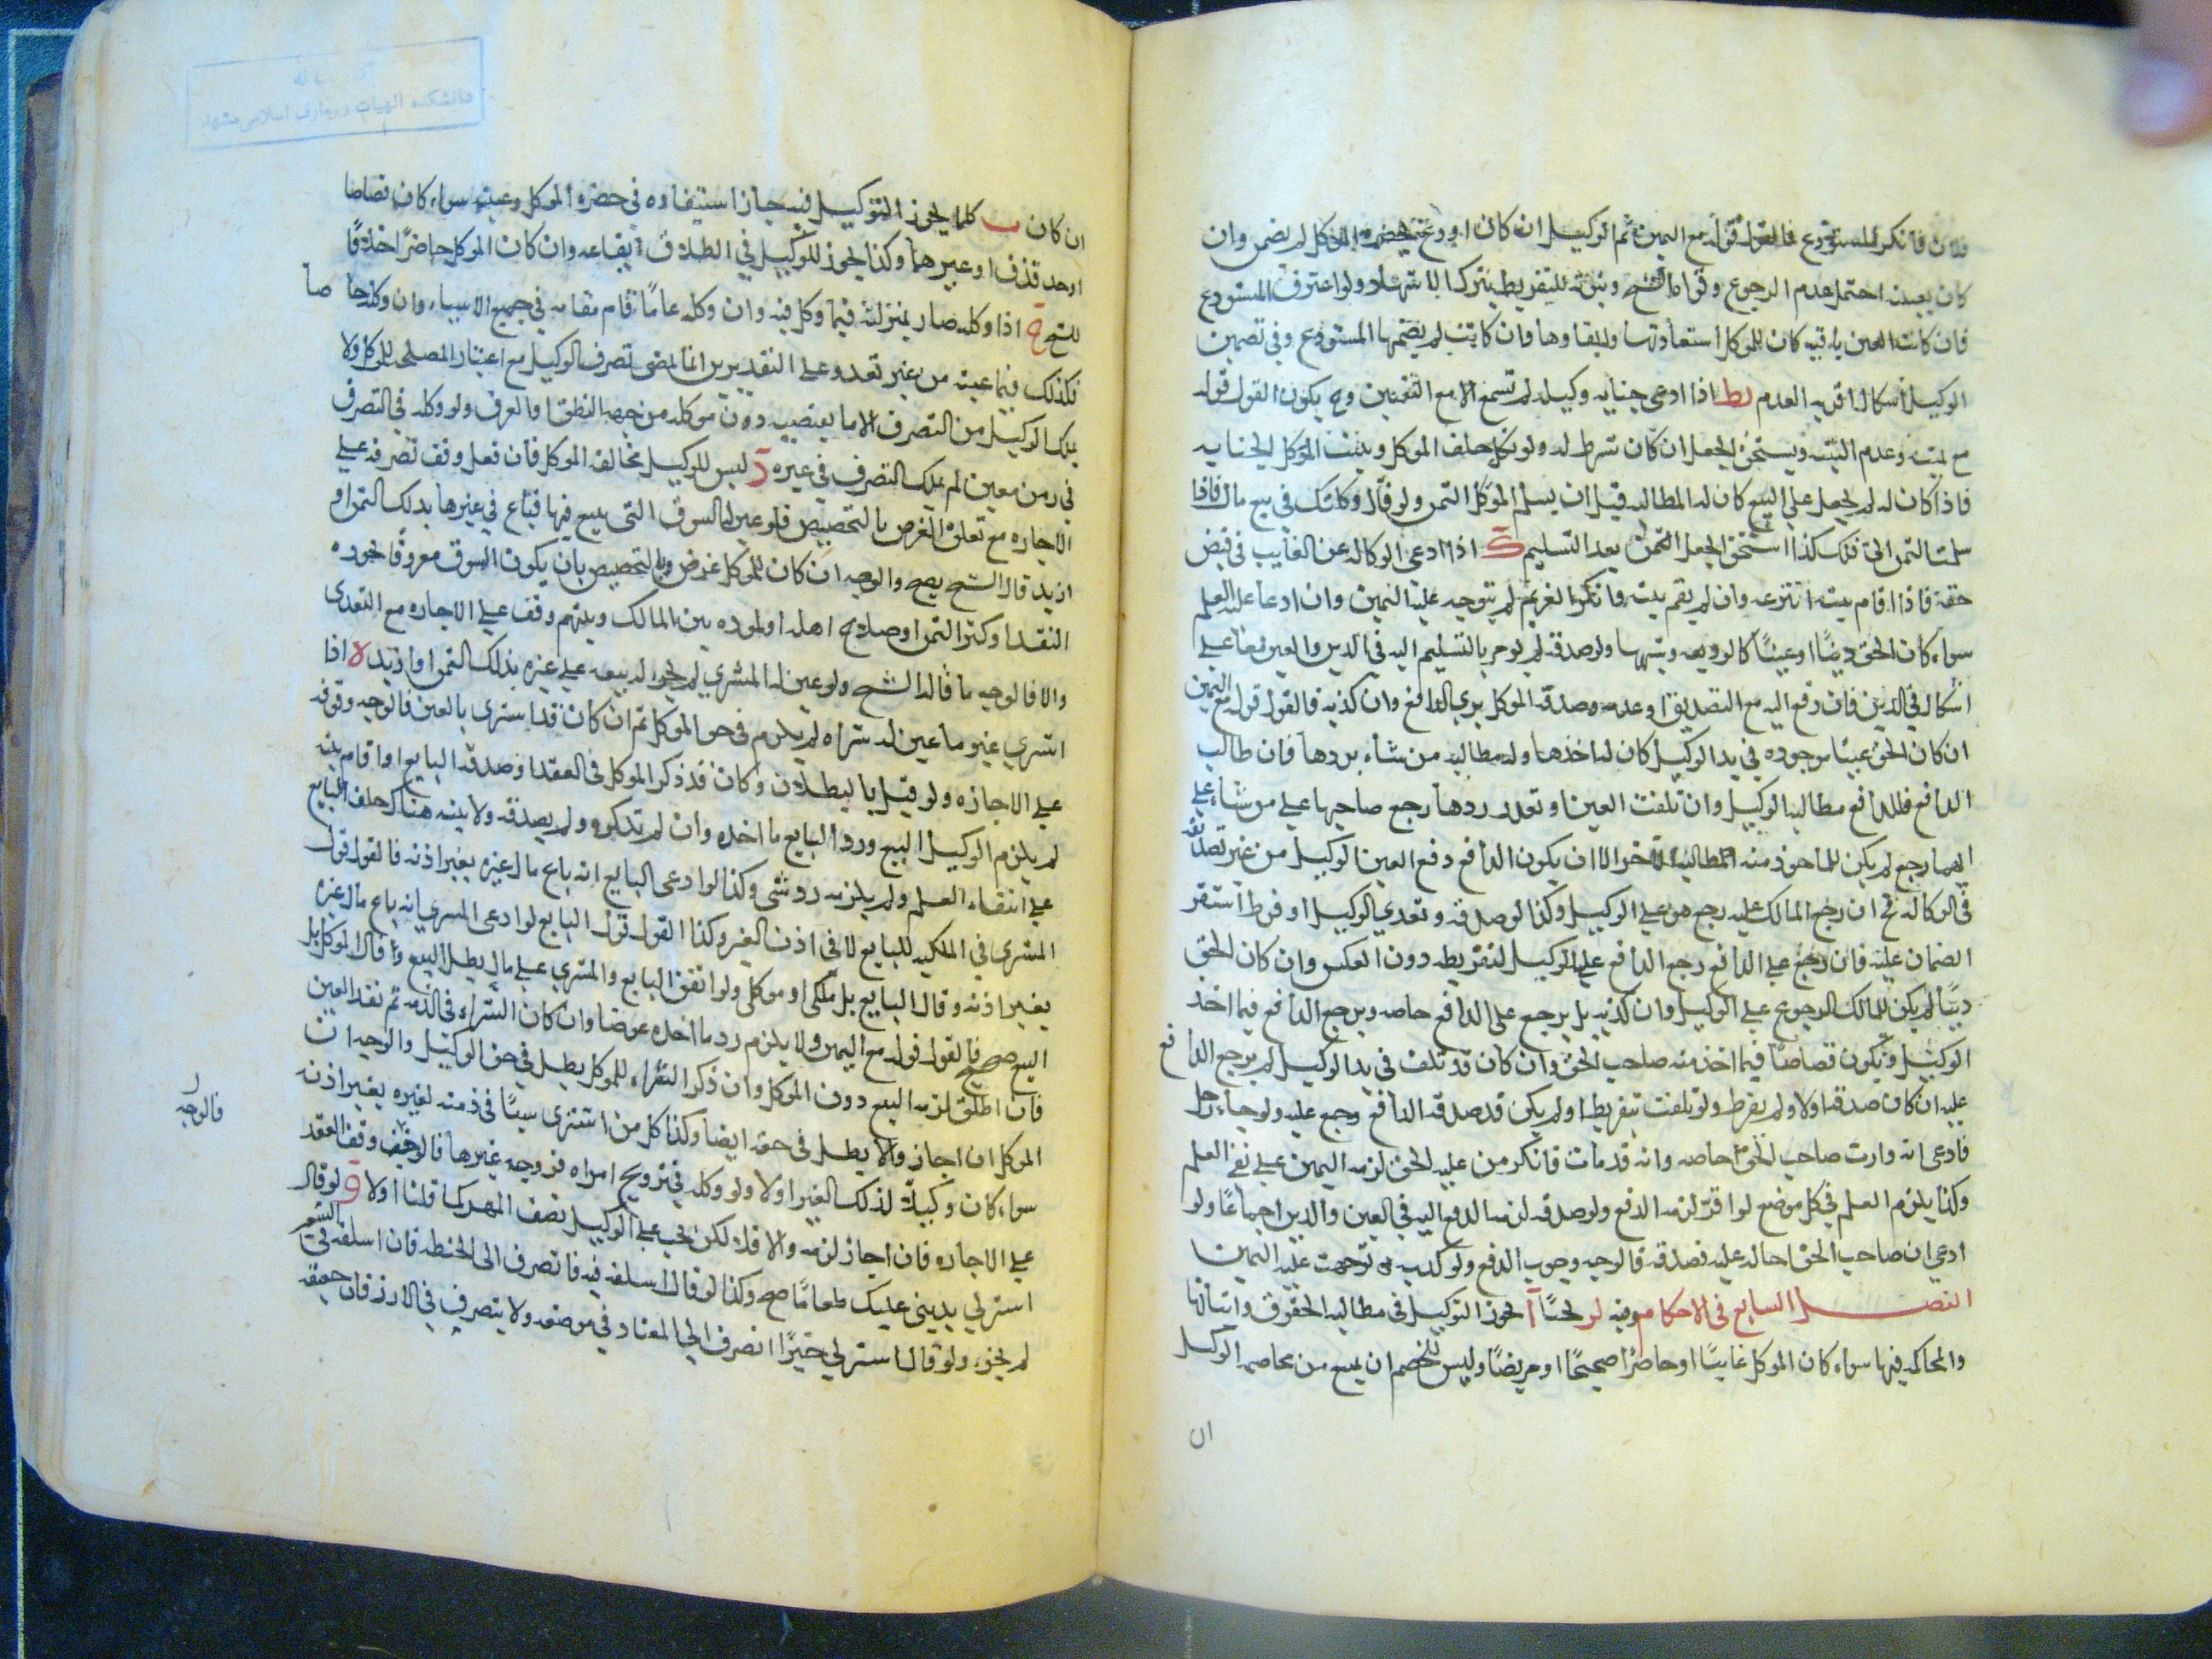 فلان فانكر المستودع فالقول قوله مع اليمين ثم الوكيل ان كان اودع بحضرة الموكل لم يضمن وان
كان بغيبته احتمل عدم الرجوع وقواه الشيخ وثبوته للتفريط بترك الاشهاد ولو اعترف المستودع
فان كانت العين باقيه كان للموكل استعادتها وابقاوها فان كانت لم يضمنها المستودع وفي تضمين
الوكيل اشكال اقربه العدم يط اذا ادعى جنايه وكيله لم تسمع الا مع التعيين وح يكون القول قوله
مع يمينه وعدم البينه ويستحق الجعل ان كان شرط له ولو نكل حلف الموكل ويثبت الموكل الجنايه
فاذا كان له لم يجعل على البيع كان له المطالبه قبل ان يسلم الموكل الثمن ولو قال وكلتك في بيع مالى فاذا
سلمت الثمن الى فلك كذا استحق الجعل الثمن بعد التسليم ك اذا ادعى الوكاله عن الغايب في قبض
حقه فاذا اقام بينه انتزعه وان لم يقم بينه وانكر الغريم لم يتوجه عليه اليمين وان ادعا عليه العلم
سواء كان الحق ديناً او عيناً كالوديعه وشبهها ولو صدقه لم يومر بالتسليم اليه في الدين والعين معا على
اشكال في الدين فان دفع اليه مع التصديق او عدمه وصدقه الموكل بري الدافع وان كذبه فالقول قوله مع اليمين
ان كان الحق عيناً موجوده في يد الوكيل كان له اخذها وله مطالبه من شاء بردها فان طالب
الدافع فللدافع مطالبه الوكيل وان تلفت العين او تعذر ردها رجع صاحبها على من شاء على
ايهما رجع لم يكن للماخوذ منه المطالبه للاخر الا ان يكون الدافع دفع العين الوكيل من غير تصديقه
في الوكاله فح ان رجع المالك عليه رجع هو على الوكيل وكذا لو صدقه وتعدي الوكيل او فرط استقر
الضمان عليه فان رجع على الدافع رجع الدافع على الوكيل لتفريطه دون العكس وان كان الحق
ديناً لم يكن للمالك الرجوع على الوكيل وان كذبه بل يرجع على الدافع خاصه ويرجع الدافع فيما اخذ
الوكيل ويكون قصاصا فيما اخذ منه صاحب الحق وان كان قد تلف في يد الوكيل لم يرجع الدافع
عليه ان كان صدقه اولا ولم يفرط ولو تلفت بتفريط او لم يكن قد صدقه الدافع رجع عليه ولو جاء رجل
فادعى انه وارث صاحب الحق خاصه وانه قد مات فانكر من عليه الحق لزمه اليمين على نفي العلم
وكذا يلزم العلم في كل موضع لو اقر لزمه الدفع ولو صدقه لزمه الدفع اليه في العين والدين اجماعاً ولو
ادعى ان صاحب الحق احاله عليه فصدقه فالوجه وجوب الدفع ولو كذبه توجهت عليه اليمين
الفصل السابع في الاحكام وفيه لر بحثاً آ يجوز التوكيل في مطالبه الحقوق واثباتها
والمحاكمه فيها سواء كان الموكل غايبًا او حاضرًا صحيحًا او مريضًا وليس للخصم ان يمنع من مخاصمه الوكيل
ان
ان كان ب كلما يجوز التوكيل فيه جاز استيفاوه في حضره الموكل وغيبته سواء كان قصاصا
او حد قذف او غيرهما وكذا يجوز للوكيل في الطلاق ايقاعه وان كان الموكل حاضرًا خلافًا
للشيخ ج اذا وكله صار بمنزلته فيما وكل فيه وان وكله عامًا قام مقامه في جميع الاشياء وان وكله خاصا
فكذلك فيما عينه من غير تعد وعلى التقديرين انما يمضى تصرف الوكيل مع اعتبار المصلحه للموكل ولا
يملك الوكيل من التصرف الا ما يقتضيه دون موكله من جهه النطق او العرف ولو وكله في التصرف
في زمن معين لم يملك التصرف في غيره د ليس للوكيل مخالفه الموكل فان فعل وقف تصرفه على
الاجازه مع تعلق الغرض بالتخصيص فلو عين له السوق التى يبيع فيها فباع في غيرها بذلك الثمن او
ازيد قال الشيخ يصح والوجه ان كان للموكل غرض بالتخصيص بان يكون السوق معروفًا بجوده
النقد او كثره الثمن او صلاح اهله او لموده بين المالك وبينهم وقف على الاجازه مع التعدى
والا فالوجه ما قاله الشيخ ولو عين له المشتري لم يجز له بيعه على غيره بذلك الثمن او ازيد ه اذا
اشترى غير ما عين له شراه لم يلزم في حق الموكل ثم ان كان قد اشترى بالعين فالوجه وقوفه
على الاجازه ولو قيل بالبطلان وكان قد ذكر الموكل في العقد او صدقه البايع او اقام بينه
لم يلزم الوكيل البيع ورد البايع ما اخذه وان لم يذكره ولم يصدقه ولا بينه هناك حلف البايع
على انتفاء العلم ولم يلزمه رد شي وكذا لو ادعى البايع انه باع مال غيره بغير اذنه فالقول قول
المشترى في الملكيه للبايع لا في اذن الغير وكذا القول قول البايع لو ادعى المشري انه باع مال غيره
بغير اذنه وقال البايع بل ملكى او موكلى ولو اتفق البايع والمشتري على ما يبطل البيع وقال الموكل بل
البيع صحيح فالقول قوله مع اليمين ولا يلزم رد ما اخذه عوضا وان كان الشراء في الذمه ثم نقد العين
فان اطلق لزمه البيع دون الموكل وان ذكر الشراء للموكل بطل في حق الوكيل والوجه ان
الموكل ان اجاز والا بطل في حقه ايضا وكذا كل من اشترى شيئًا في ذمته لغيره بغير اذنه
سواء كان وكيلاً لذلك الغير او لا ولو وكله في تزويج امراه فزوجه غيرها فالوجه وقف العقد
على الاجازه فان اجاز لزمه والا فلا لكن يجب على الوكيل نصف المهر كما قلنا اولا و لو قال
اشتر لي بدينى عليك طعامًا صح وكذا لو قال اسلفه فيه فانصرف الى الحنطه فان اسلفه في الشعير
لم يجز ولو قال اشتر لي خبزًا انصرف الى المعتاد في موضعه ولا ينصرف في الارز فان
فالوجه
دانشكده الهيات ومعارف اسلامى مشهد